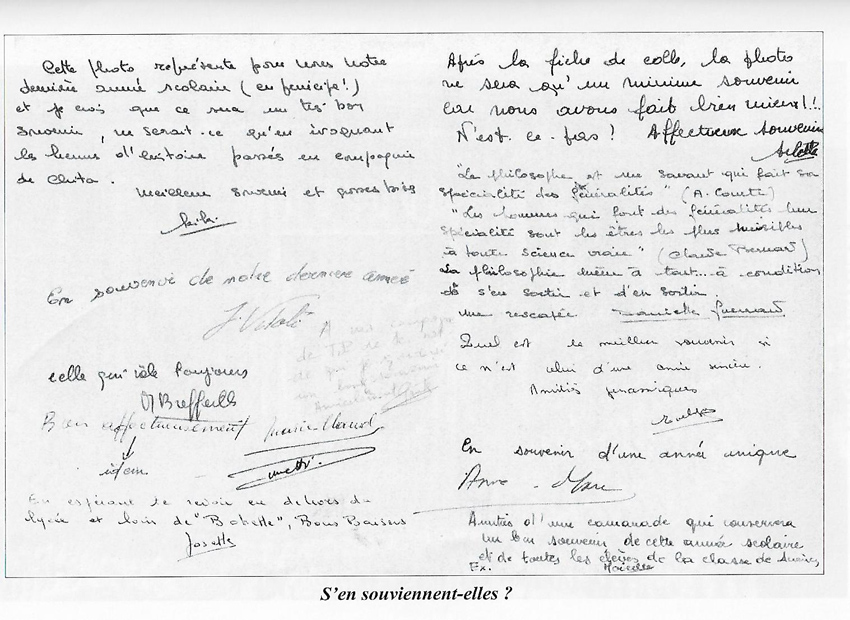 Cette photo représente pour nous notre
dernière année scolaire (en principe!)
et je crois que ce sera un très bon
souvenir, ne serait-ce qu'en évoquant
les heures d'histoire passées en compagnie
de
Meilleur souvenir et grosses bises
En souvenir de notre dernière année
J. Vitali
celle qui râle toujours
Bien affectueusement
idem.
En espérant te revoir en dehors du
lycée et loin de "Babette", Bons Baisers
Josette
Après la fiche de colle, la photo
ne sera qu'un minime souvenir
car nous avons fait bien mieux!!.
N'est-ce-pas! Affectueux souvenir
Arlette
"Le philosophe est un savant qui fait sa
spécialité des généralités" (A. Comte)
"Les hommes qui font des généralités leur
spécialité sont les êtres les plus nuisibles
à toute science vraie" (Claude Bernard)
La philosophie mène à tout... à condition
de s'en sortir et d'en sortir.
une rescapée Danielle
Quel est le meilleur souvenir si
ce n'est celui d'une amie sincère.
Amitiés
En souvenir d'une année unique
Anne-Marie
Amitiés d'une camarade qui conservera
un bon souvenir de cette année scolaire
et de toutes les élèves de la classe de
Ex.
S'en souviennent-elles ?